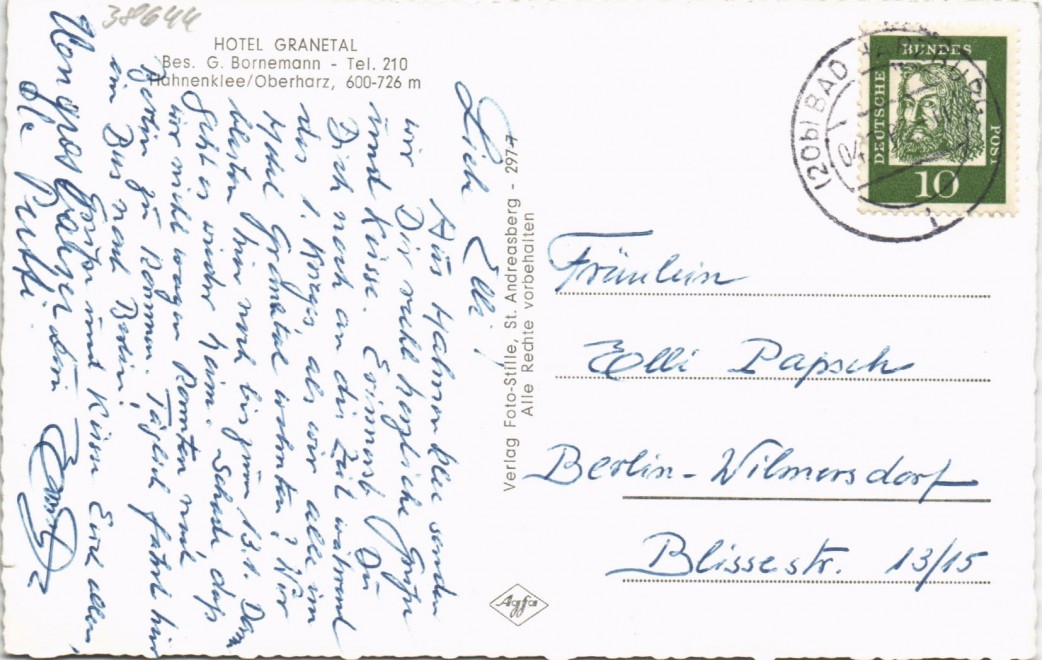 38644
HOTEL GRANETAL
Bes. G. Bornemann - Tel. 210
Hahnenklee/Oberharz, 600-726 m
Liebe Elli!
Aus Hahnenklee senden
wir Dir recht herzliche Grüße
und Küsse. Erinnerst Du
Dich noch an die Zeit während
des 1. Krieges, als wir alle im
Hotel Granetal wohnten? Wir
bleiben hier noch bis zum 13.1. Dann
geht es wieder heim. Schade, daß
wir nicht wagen konnten mal
Berlin zu kommen. Täglich fährt hier
ein Bus nach Berlin!
Herzliche Grüße und Küsse Euch allen,
Dein
Verlag Foto-Stille, St. Andreasberg - 2977
Alle Rechte vorbehalten
Agfa
(20b) BAD HARZBURG
04
1
DEUTSCHE BUNDES POST
10
Fräulein
Elli Papsch
Berlin-Wilmersdorf
Blissestr. 13/15